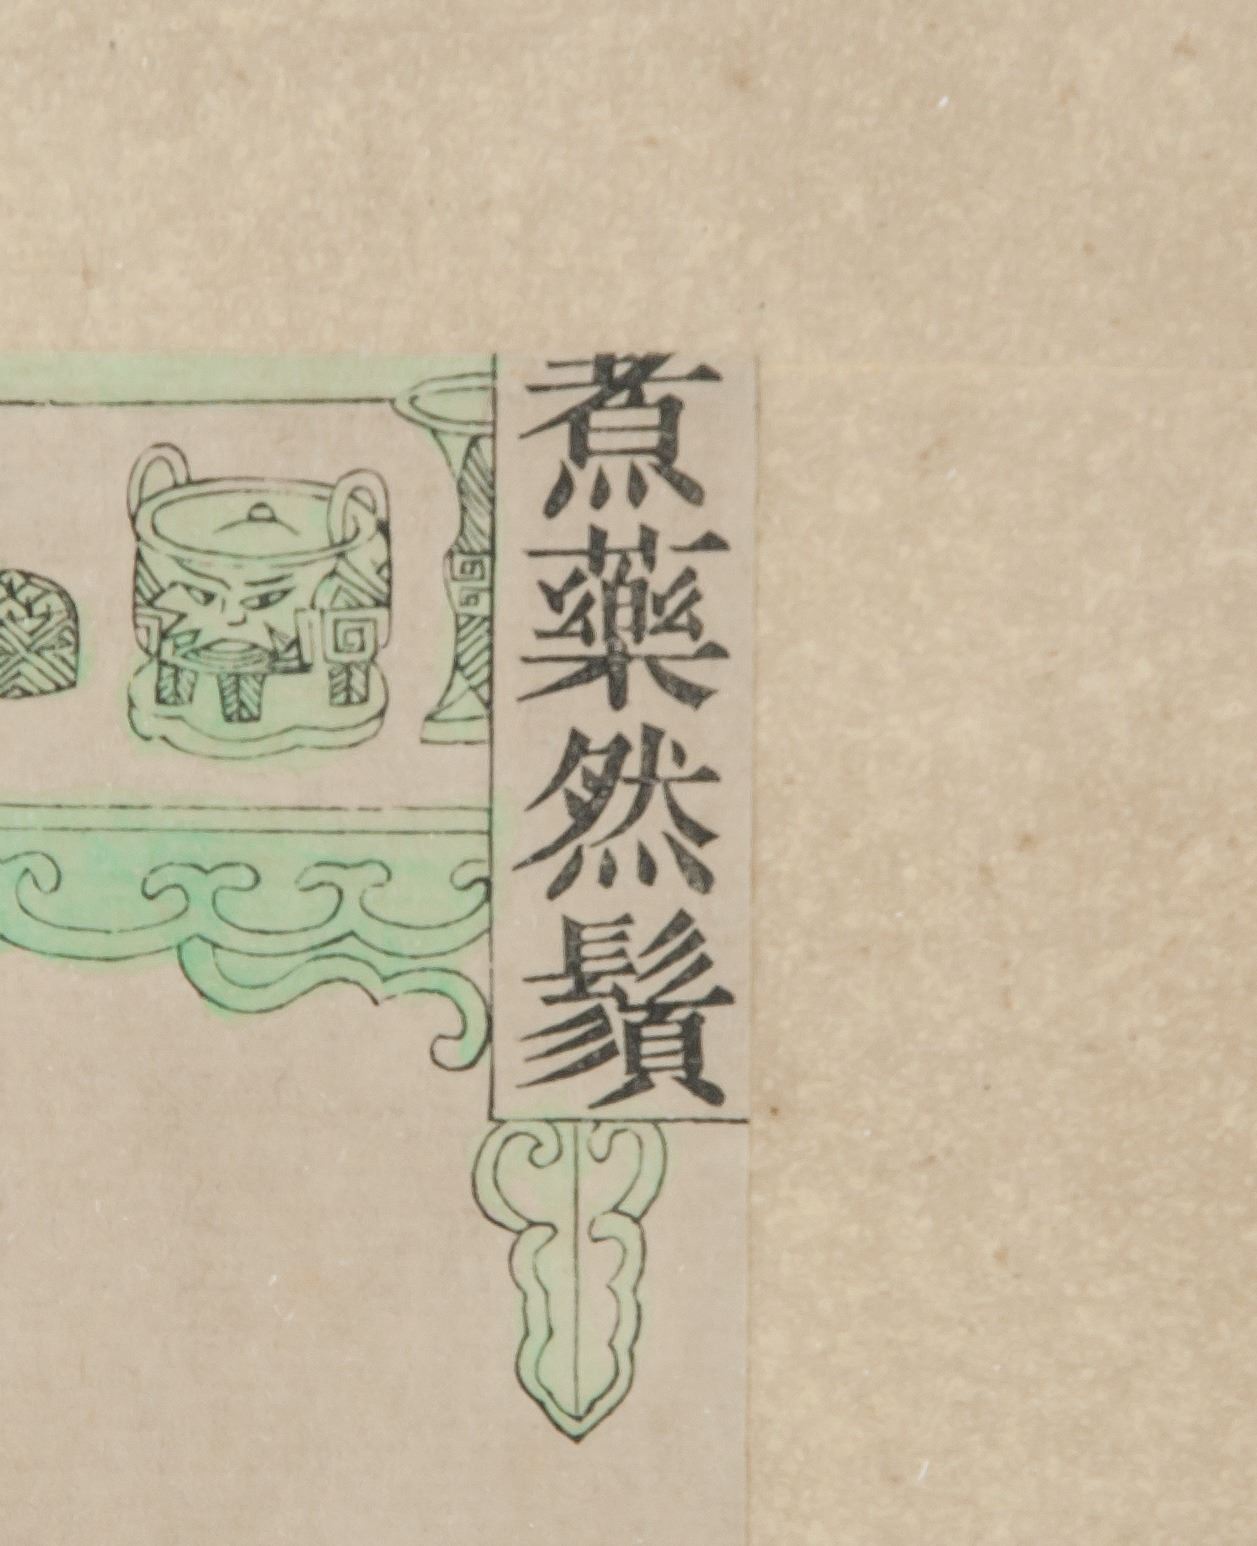 煮藥然鬚